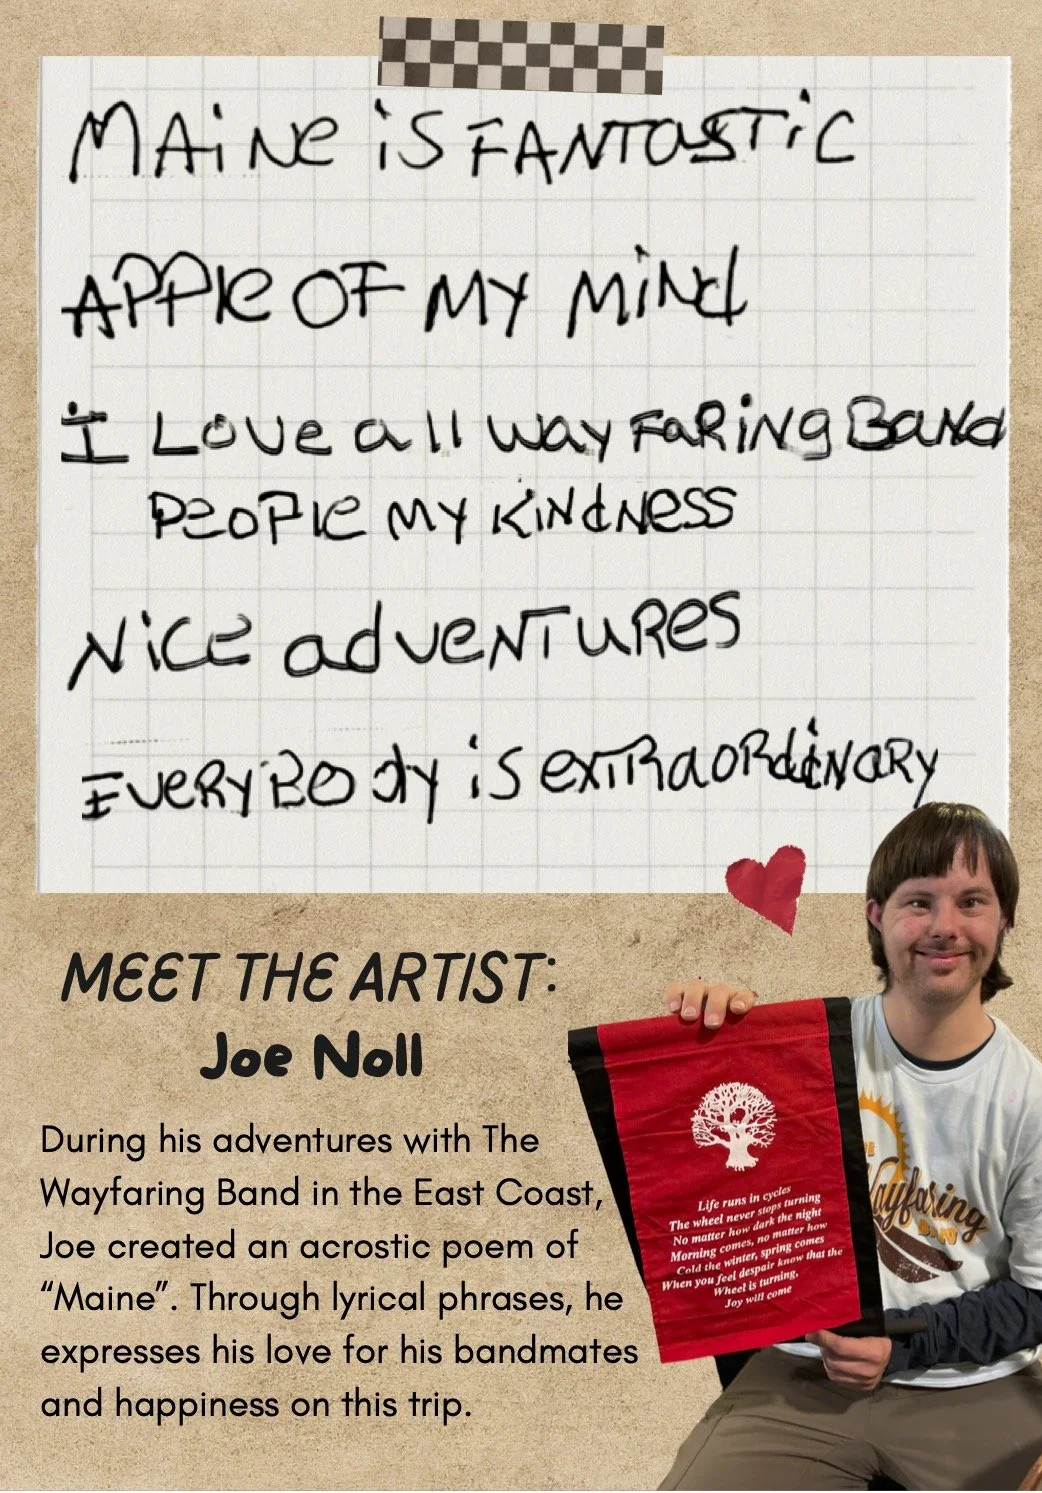 MAiNe iS FANTaSTiC
APPle OF MY MiNd
I Love all way FaRiNg BaNd
PeoPle MY KiNdNess
NiCe adveNTuRes
EveRyBody is extRaoRdiNaRy
MEET THE ARTIST:
Joe Noll
During his adventures with The
Wayfaring Band in the East Coast,
Joe created an acrostic poem of
“Maine”. Through lyrical phrases, he
expresses his love for his bandmates
and happiness on this trip.
Life runs in cycles
The wheel never stops turning
No matter how dark the night
Morning comes, no matter how
Cold the winter, spring comes
When you feel despair know that the
Wheel is turning,
Joy will come
Wayfaring